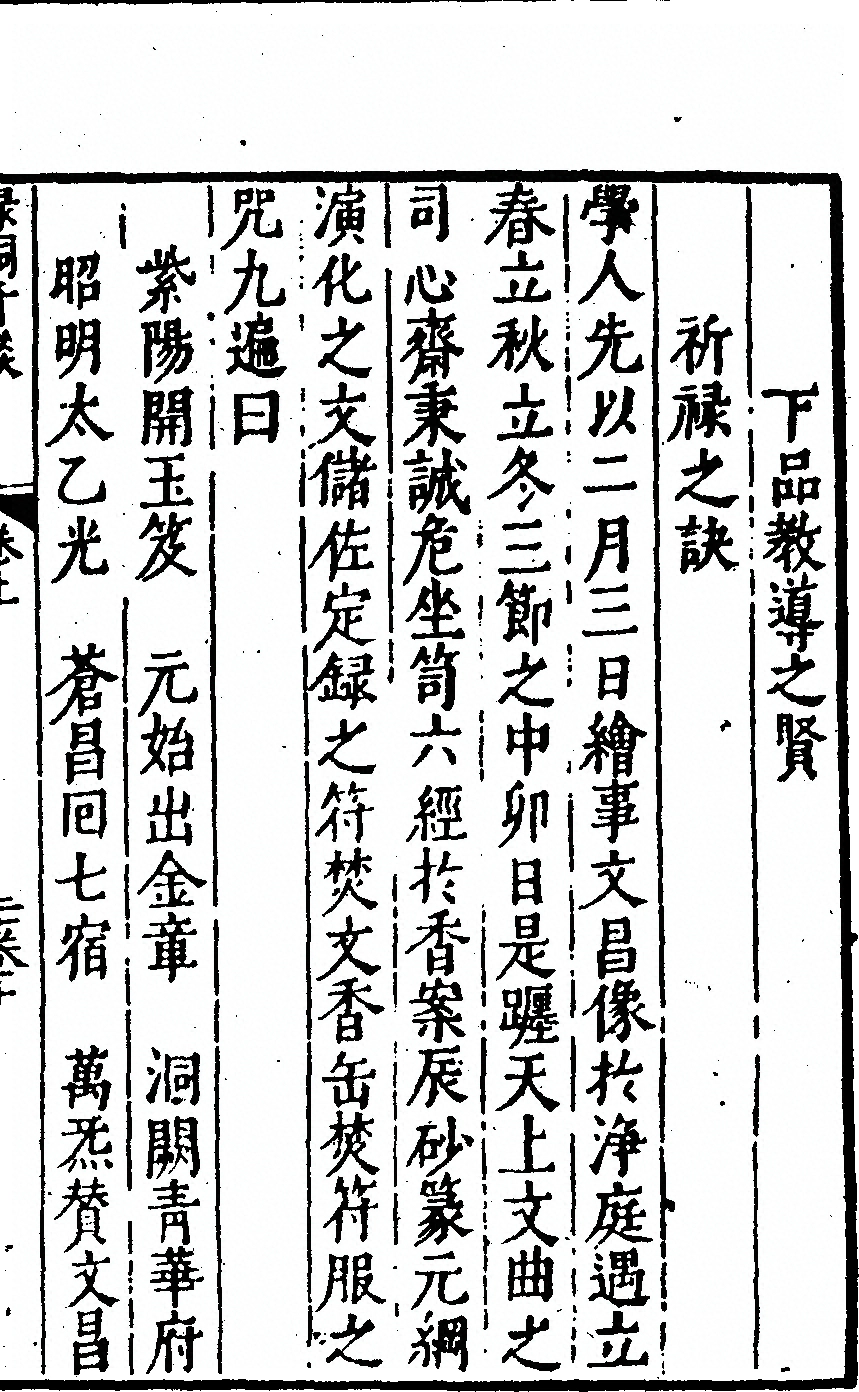 下品教導之賢
祈祿之訣
學人先以二月三日繪事文昌像於淨庭遇立
春立秋立冬三節之中卯日是躔天上文曲之
司心齋秉誠危坐笥六經於香案辰砂篆元綱
演化之文儲佐定録之符焚文香缶焚符服之
咒九遍曰
紫陽開玉笈　元始出金章　洞闕青華府
昭明太乙光　蒼昌回七宿　萬炁賛文昌